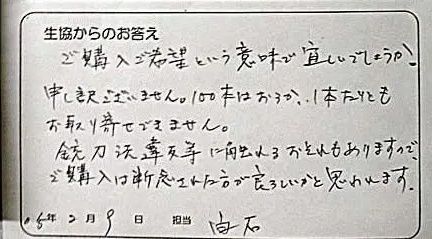 生協からのお答え
ご購入ご希望という意味で宜しいでしょうか?
申し訳ございません。100本はおろか、1本たりとも
お取り寄せできません。
銃刀法違反等に触れるおそれもありますので、
ご購入は断念された方が良ろしいかと思われます。
'05年2月9日 担当 白石